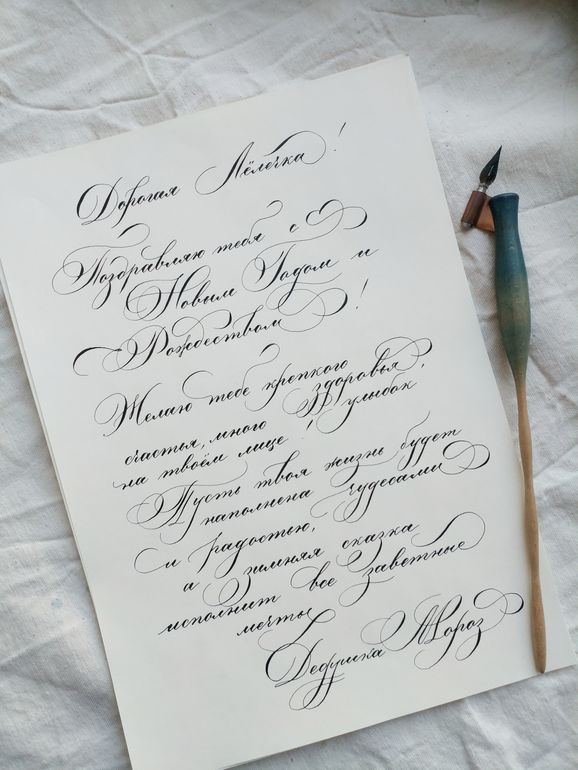 Дорогая Лёлечка!
Поздравляю тебя с
Новым Годом и
Рождеством!
Желаю тебе крепкого
здоровья,
счастья, много улыбок
на твоём лице!
Пусть твоя жизнь будет
наполнена чудесами
и радостью,
а зимняя сказка
исполнит все заветные
мечты
Дедушка Мороз